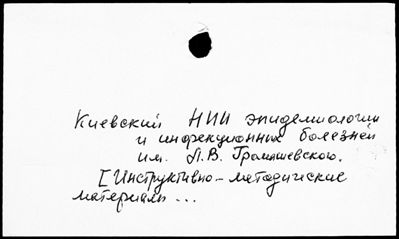 Киевский НИИ эпидемиологии
и инфекционных болезней
им. Л.В. Громашевского.
[Инструктивно-методические
материалы...